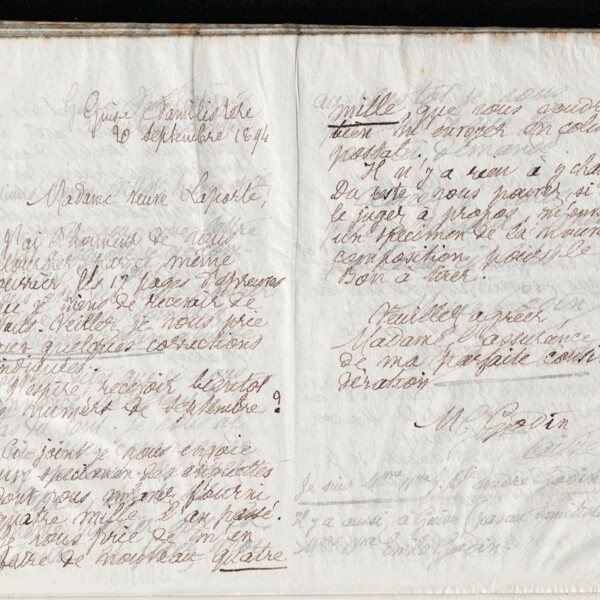 Guise Familistère
20 septembre 1894
Madame veuve Laporte,
J'ai l'honneur de vous
retourner par ce même
courrier, les 17 pages d'épreuves
que je viens de recevoir de
vous. Veillez, je vous prie
aux quelques corrections
indiquées.
J'espère recevoir bientôt
le numéro de Septembre ?
Ci joint je vous envoie
un spécimen des étiquettes
dont vous m'avez fourni
quatre mille l'an passé.
Je vous prie de m'en
faire de nouveau quatre
mille, que vous voudrez
bien m'envoyer en colis
postal.
Il n'y a rien à y
Du reste vous pouvez, si
le jugez à propos,
un spécimen de la
composition, pour le
Bon à tirer.
Veuillez agréer,
Madame, l'assurance
de ma parfaite consi
dération
Me Godin
Je suis Mme André Godin
Il y a aussi à Guise
Mme Emile Godin.